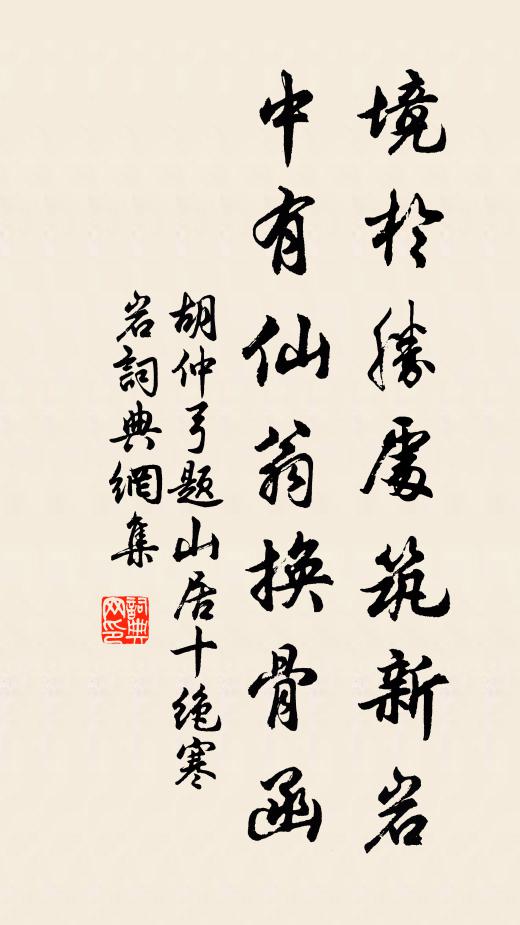 境於勝處筑新岩
中有仙翁換骨函
胡仲弓題山居十绝寒
岩詞典網集
詞典网印